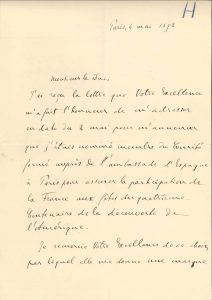 H
Paris, 4 mai 1892
Monsieur le Duc,
J'ai reçu la lettre que Votre Excellence
m'a fait l'honneur de m'adresser
en date du 2 mai pour m'annoncer
que j'étais nommé membre du Comité
formé auprès de l'ambassade d'Espagne
à Paris pour assurer la participation de
la France aux fêtes du quatrième
Centenaire de la découverte de
l'Amérique.
Je remercie Votre Excellence de ce choix
par lequel elle me donne une marque